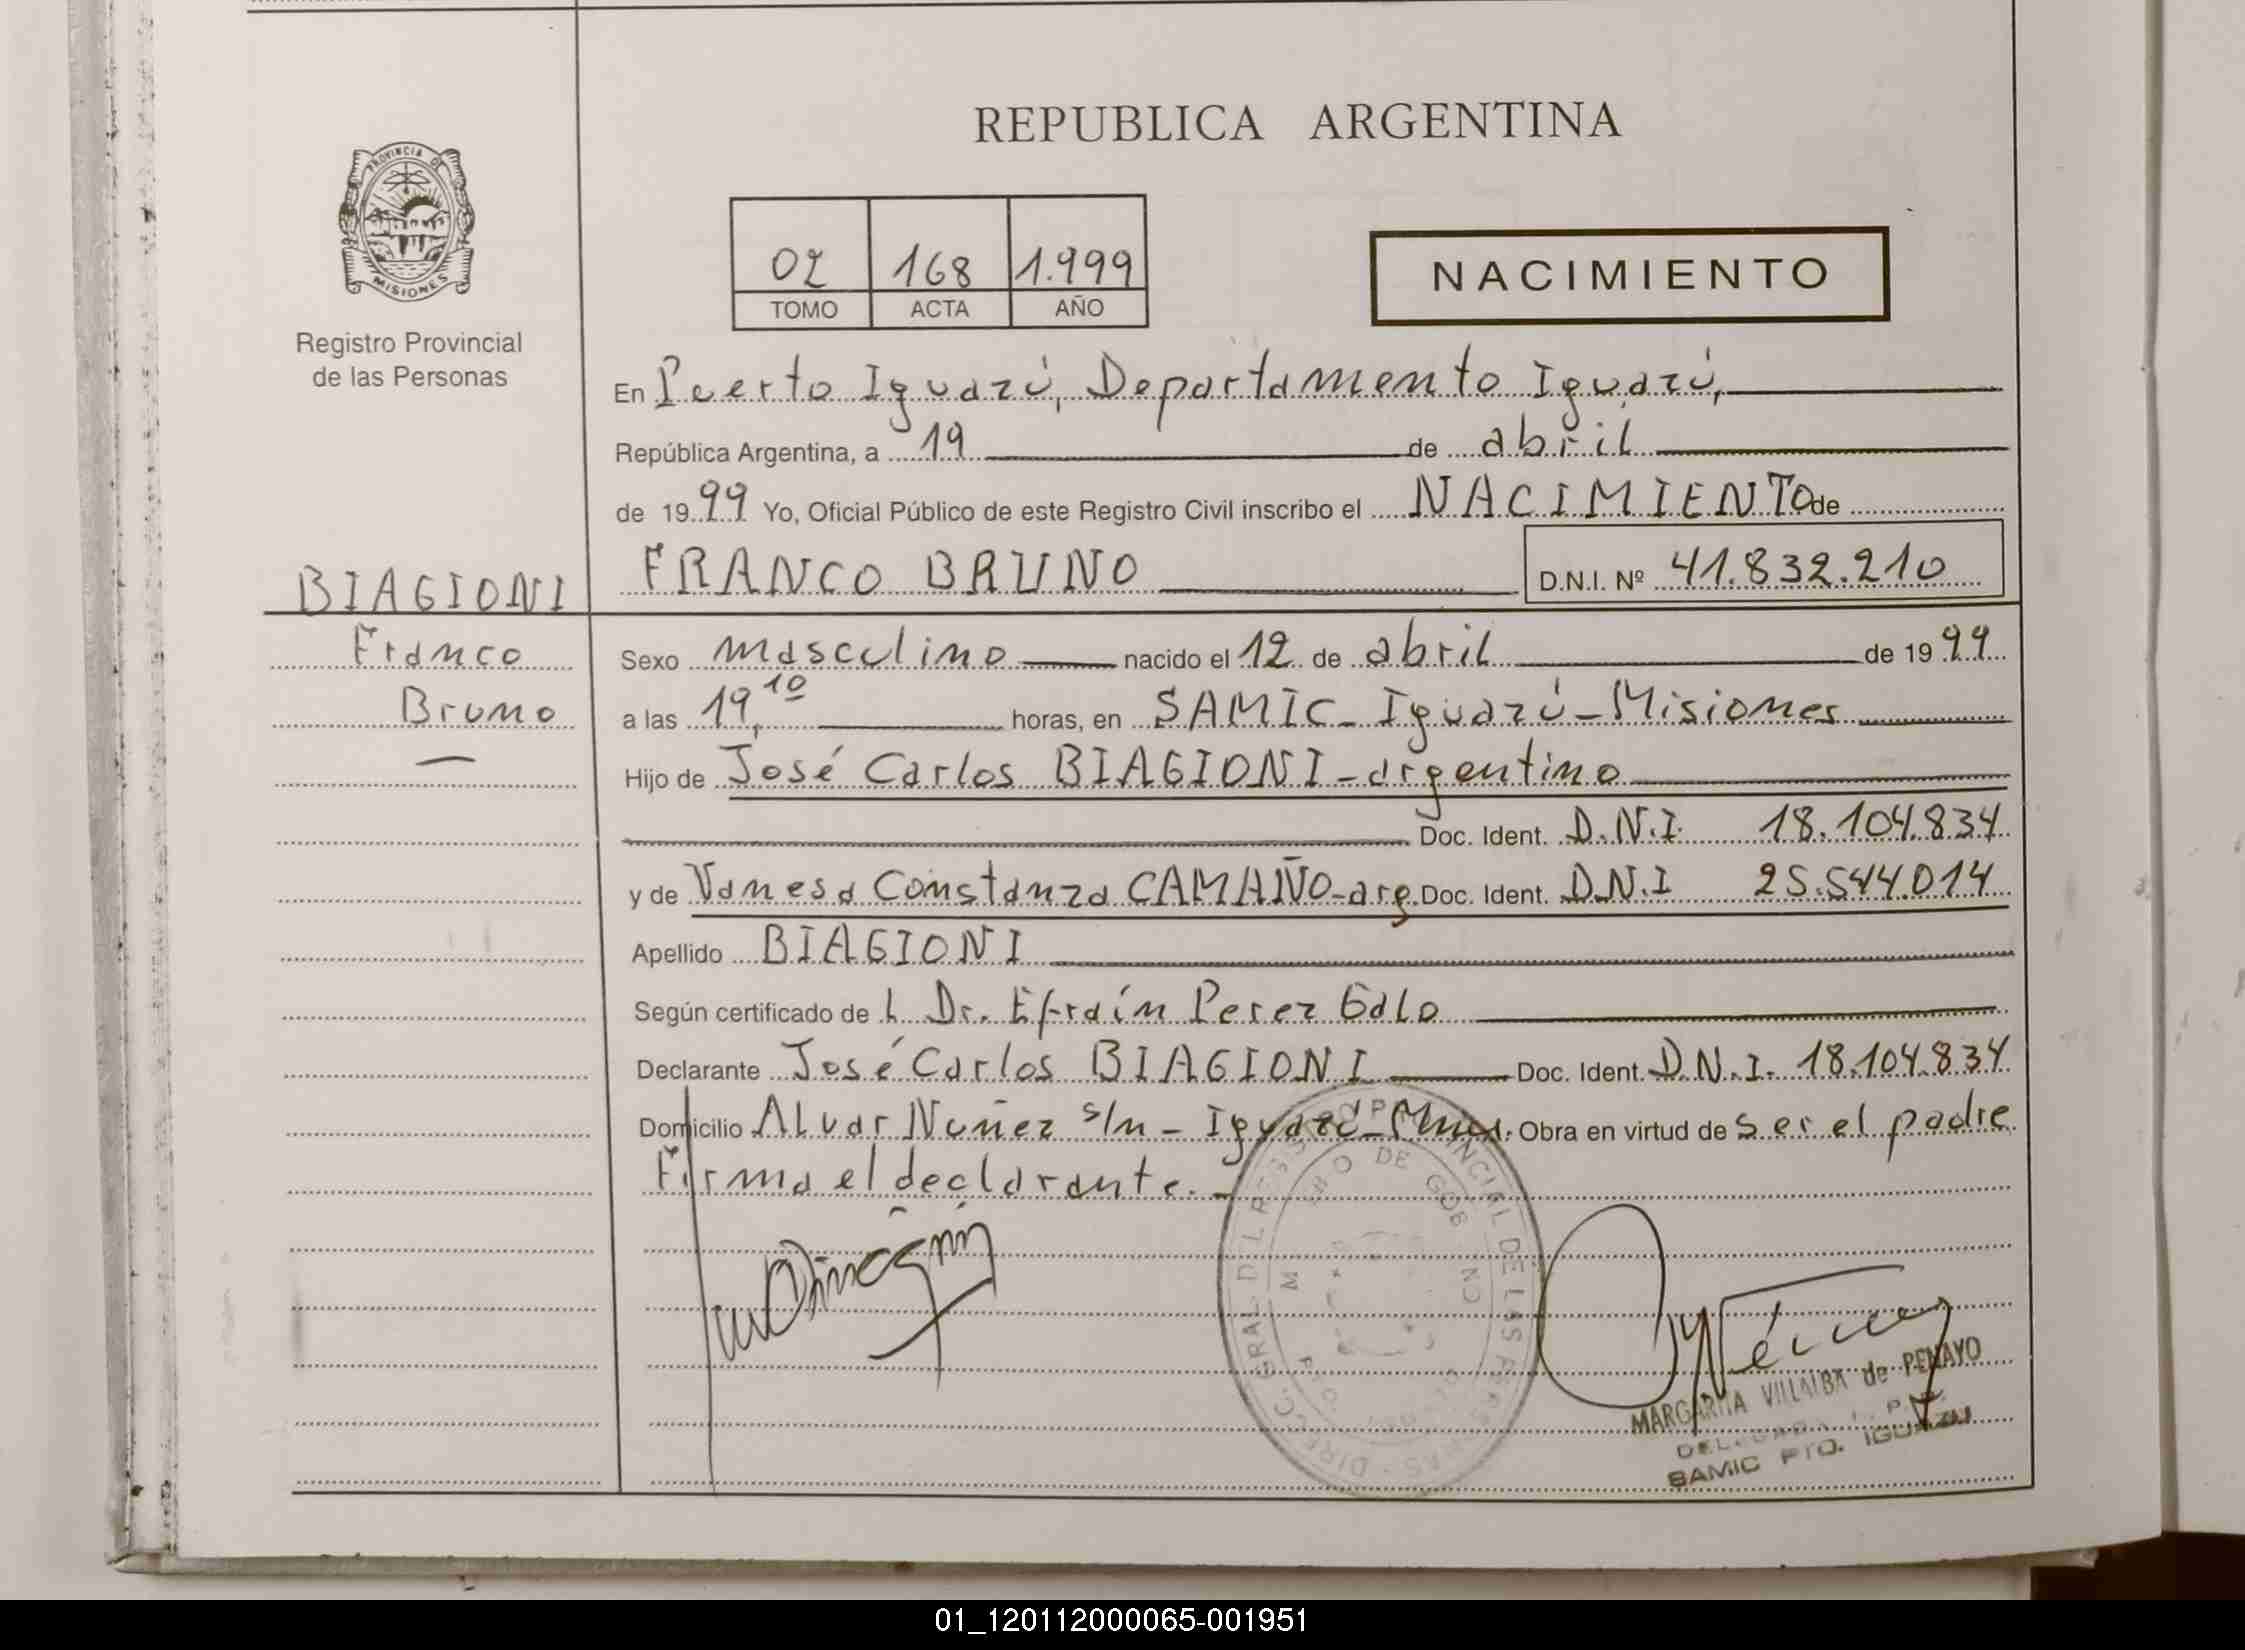 REPUBLICA ARGENTINA
PROVINCIA DE
MISIONES
Registro Provincial
de las Personas
02 168 1.999
TOMO ACTA AÑO
NACIMIENTO
En Puerto Iguazú, Departamento Iguazú,
República Argentina, a 19 de abril
de 1999 Yo, Oficial Público de este Registro Civil inscribo el NACIMIENTO de
BIAGIONI
FRANCO BRUNO D.N.I. Nº 41.832.210
Franco
Sexo masculino nacido el 12 de abril de 1999
Bruno
a las 19,10 horas, en SAMIC - Iguazú - Misiones
Hijo de José Carlos BIAGIONI - argentino
Doc. Ident. D.N.I. 18.104.834
y de Vanesa Constanza CAMAÑO - arg. Doc. Ident. D.N.I 25.544.014
Apellido BIAGIONI
Según certificado de l Dr. Efraín Perez Galo
Declarante José Carlos BIAGIONI Doc. Ident. D.N.I. 18.104.834
Domicilio Alvar Nuñez s/n - Iguazú - Obra en virtud de ser el padre
Firma el declarante. -
DIRECC. GRAL. DEL REGISTRO PROVINCIAL DE LAS PERSONAS
MARGARITA VILLALBA de PENAYO
SAMIC PTO. IGUAZU
01_120112000065-001951